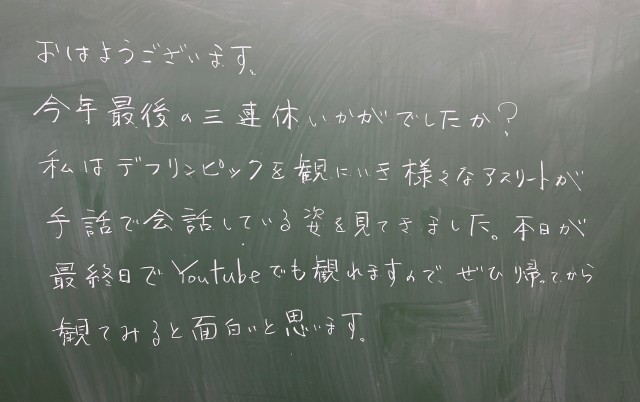 おはようございます。
今年最後の三連休いかがでしたか?
私はデフリンピックを観にいき様々なアスリートが
手話で会話している姿を見てきました。本日が
最終日でYoutubeでも観れますので、ぜひ帰ってから
観てみると面白いと思います。